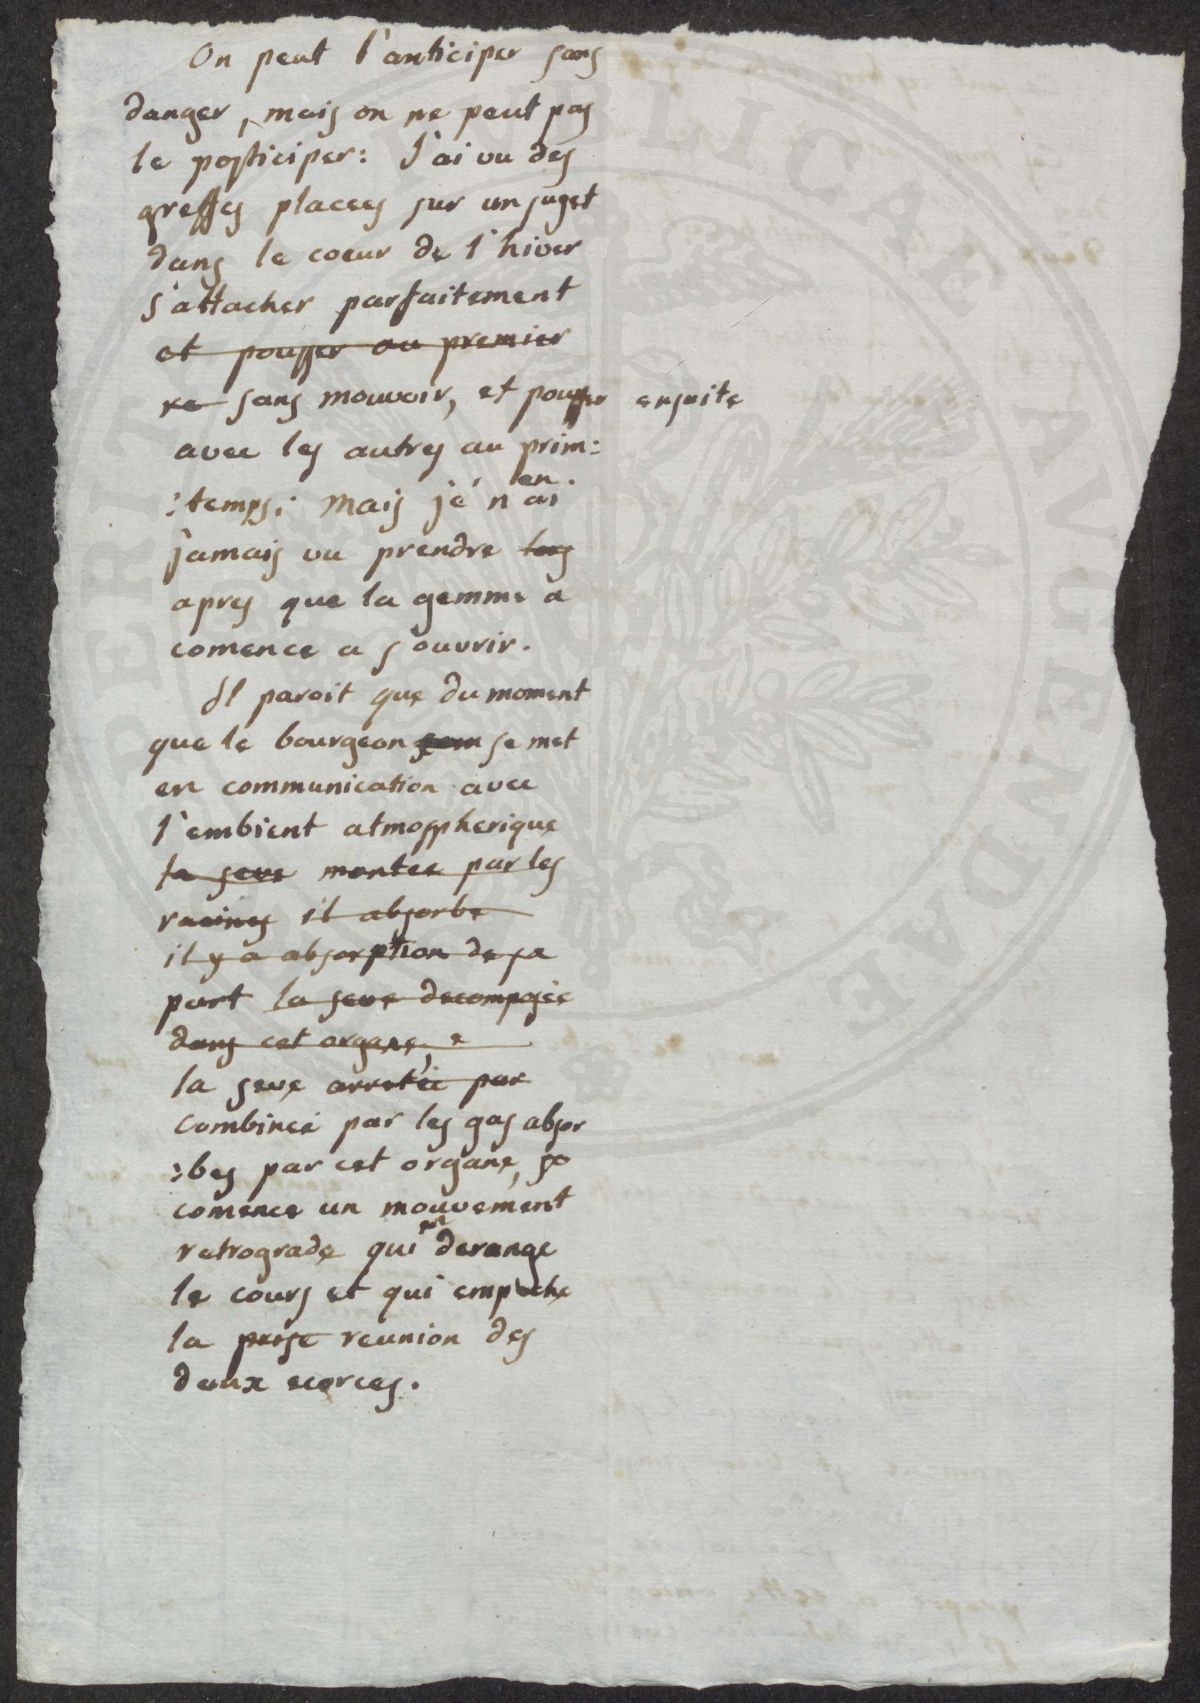 On peut l'anticiper sans
danger, mais on ne peut pas
le posticiper: J'ai vu des
greffes placees sur un suget
dans le coeur de l'hiver
s'attacher parfaitement
et pousser au premier
re sans mouvoir, et pousser ensuite
avec les autres au prim:
:temps; Mais je n'en ai
jamais vu prendre
apres que la gemme a
comence a s'ouvrir.
Il paroit que du moment
que le bourgeon se met
en communication avec
l'embient atmospherique
la seve montee par les
racines il absorbe
il y a absorption de sa
part la seve decomposée
dans cet organe,
la seve arretée par
combinée par les gas absor
:bes par cet organe,
comence un mouvement
retrograde qui en derange
le cours et qui empeche
la prise reunion des
deux ecorces.
PERIT PUBLICAE AVGENDAE